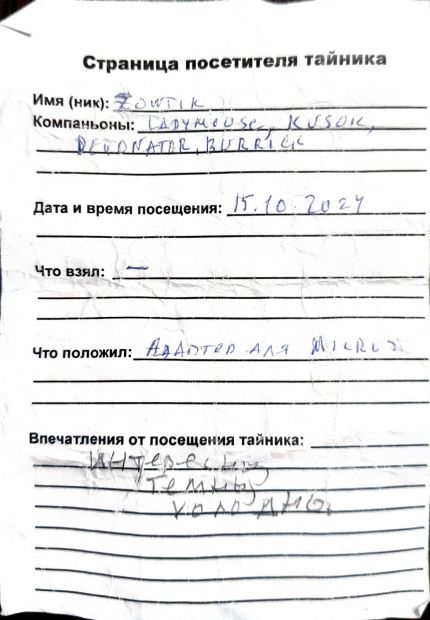 Страница посетителя тайника
Имя (ник): ZONTIK
Компаньоны: LADYMOUSE, KUSOK,
DETONATOR, BURRICK
Дата и время посещения: 15.10.2024
Что взял: —
Что положил: Адаптер для
Впечатления от посещения тайника:
Интересно,
темно,
холодно.